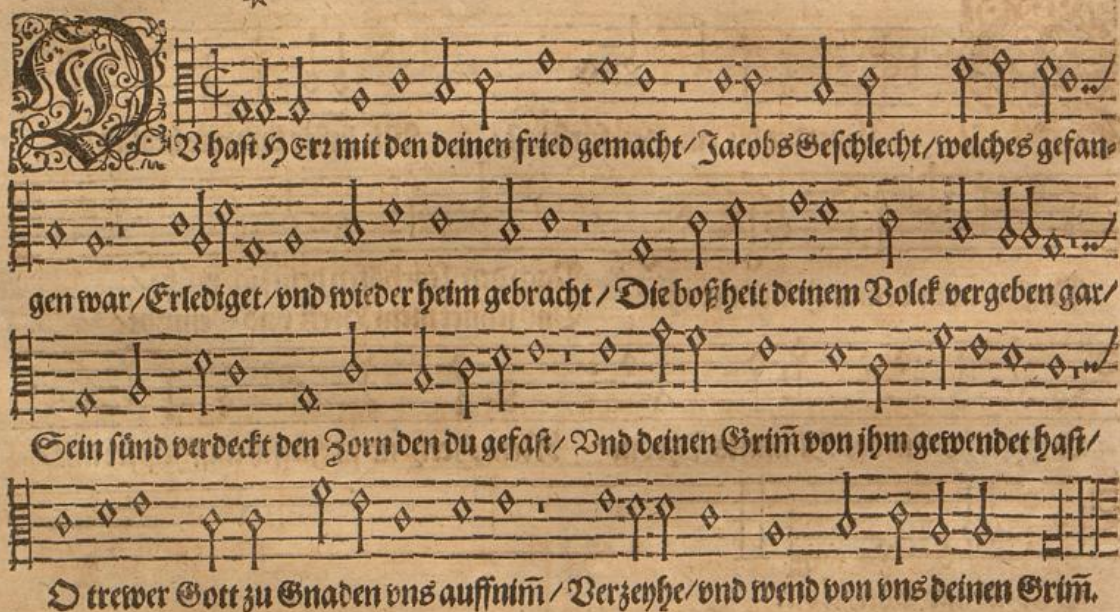 DV hast HErr mit den deinen fried gemacht/ Jacobs Geschlecht/ welches gefan-
gen war/ Erlediget/ vnd wieder heim gebracht/ Die boßheit deinem Volck vergeben gar/
Sein sünd verdeckt den Zorn den du gefast/ Vnd deinen Grim̃ von jhm gewendet hast/
O trewer Gott zu Gnaden vns auffnim̃/ Verzeyhe/ vnd wend von vns deinen Grim̃.